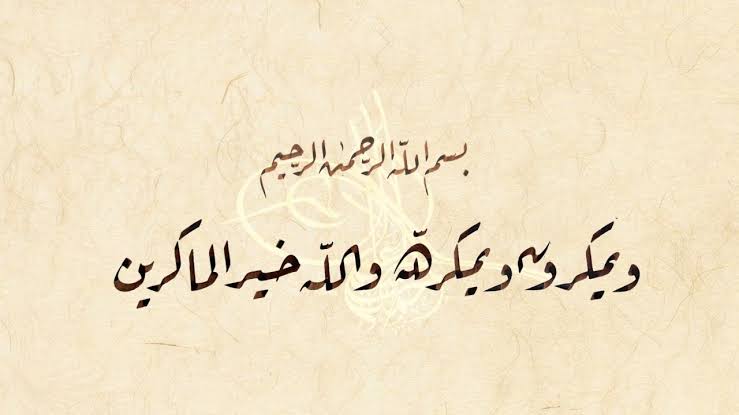 بسم الله الرحمن الرحيم
ويمكرون ويمكر الله والله خير الماكرين